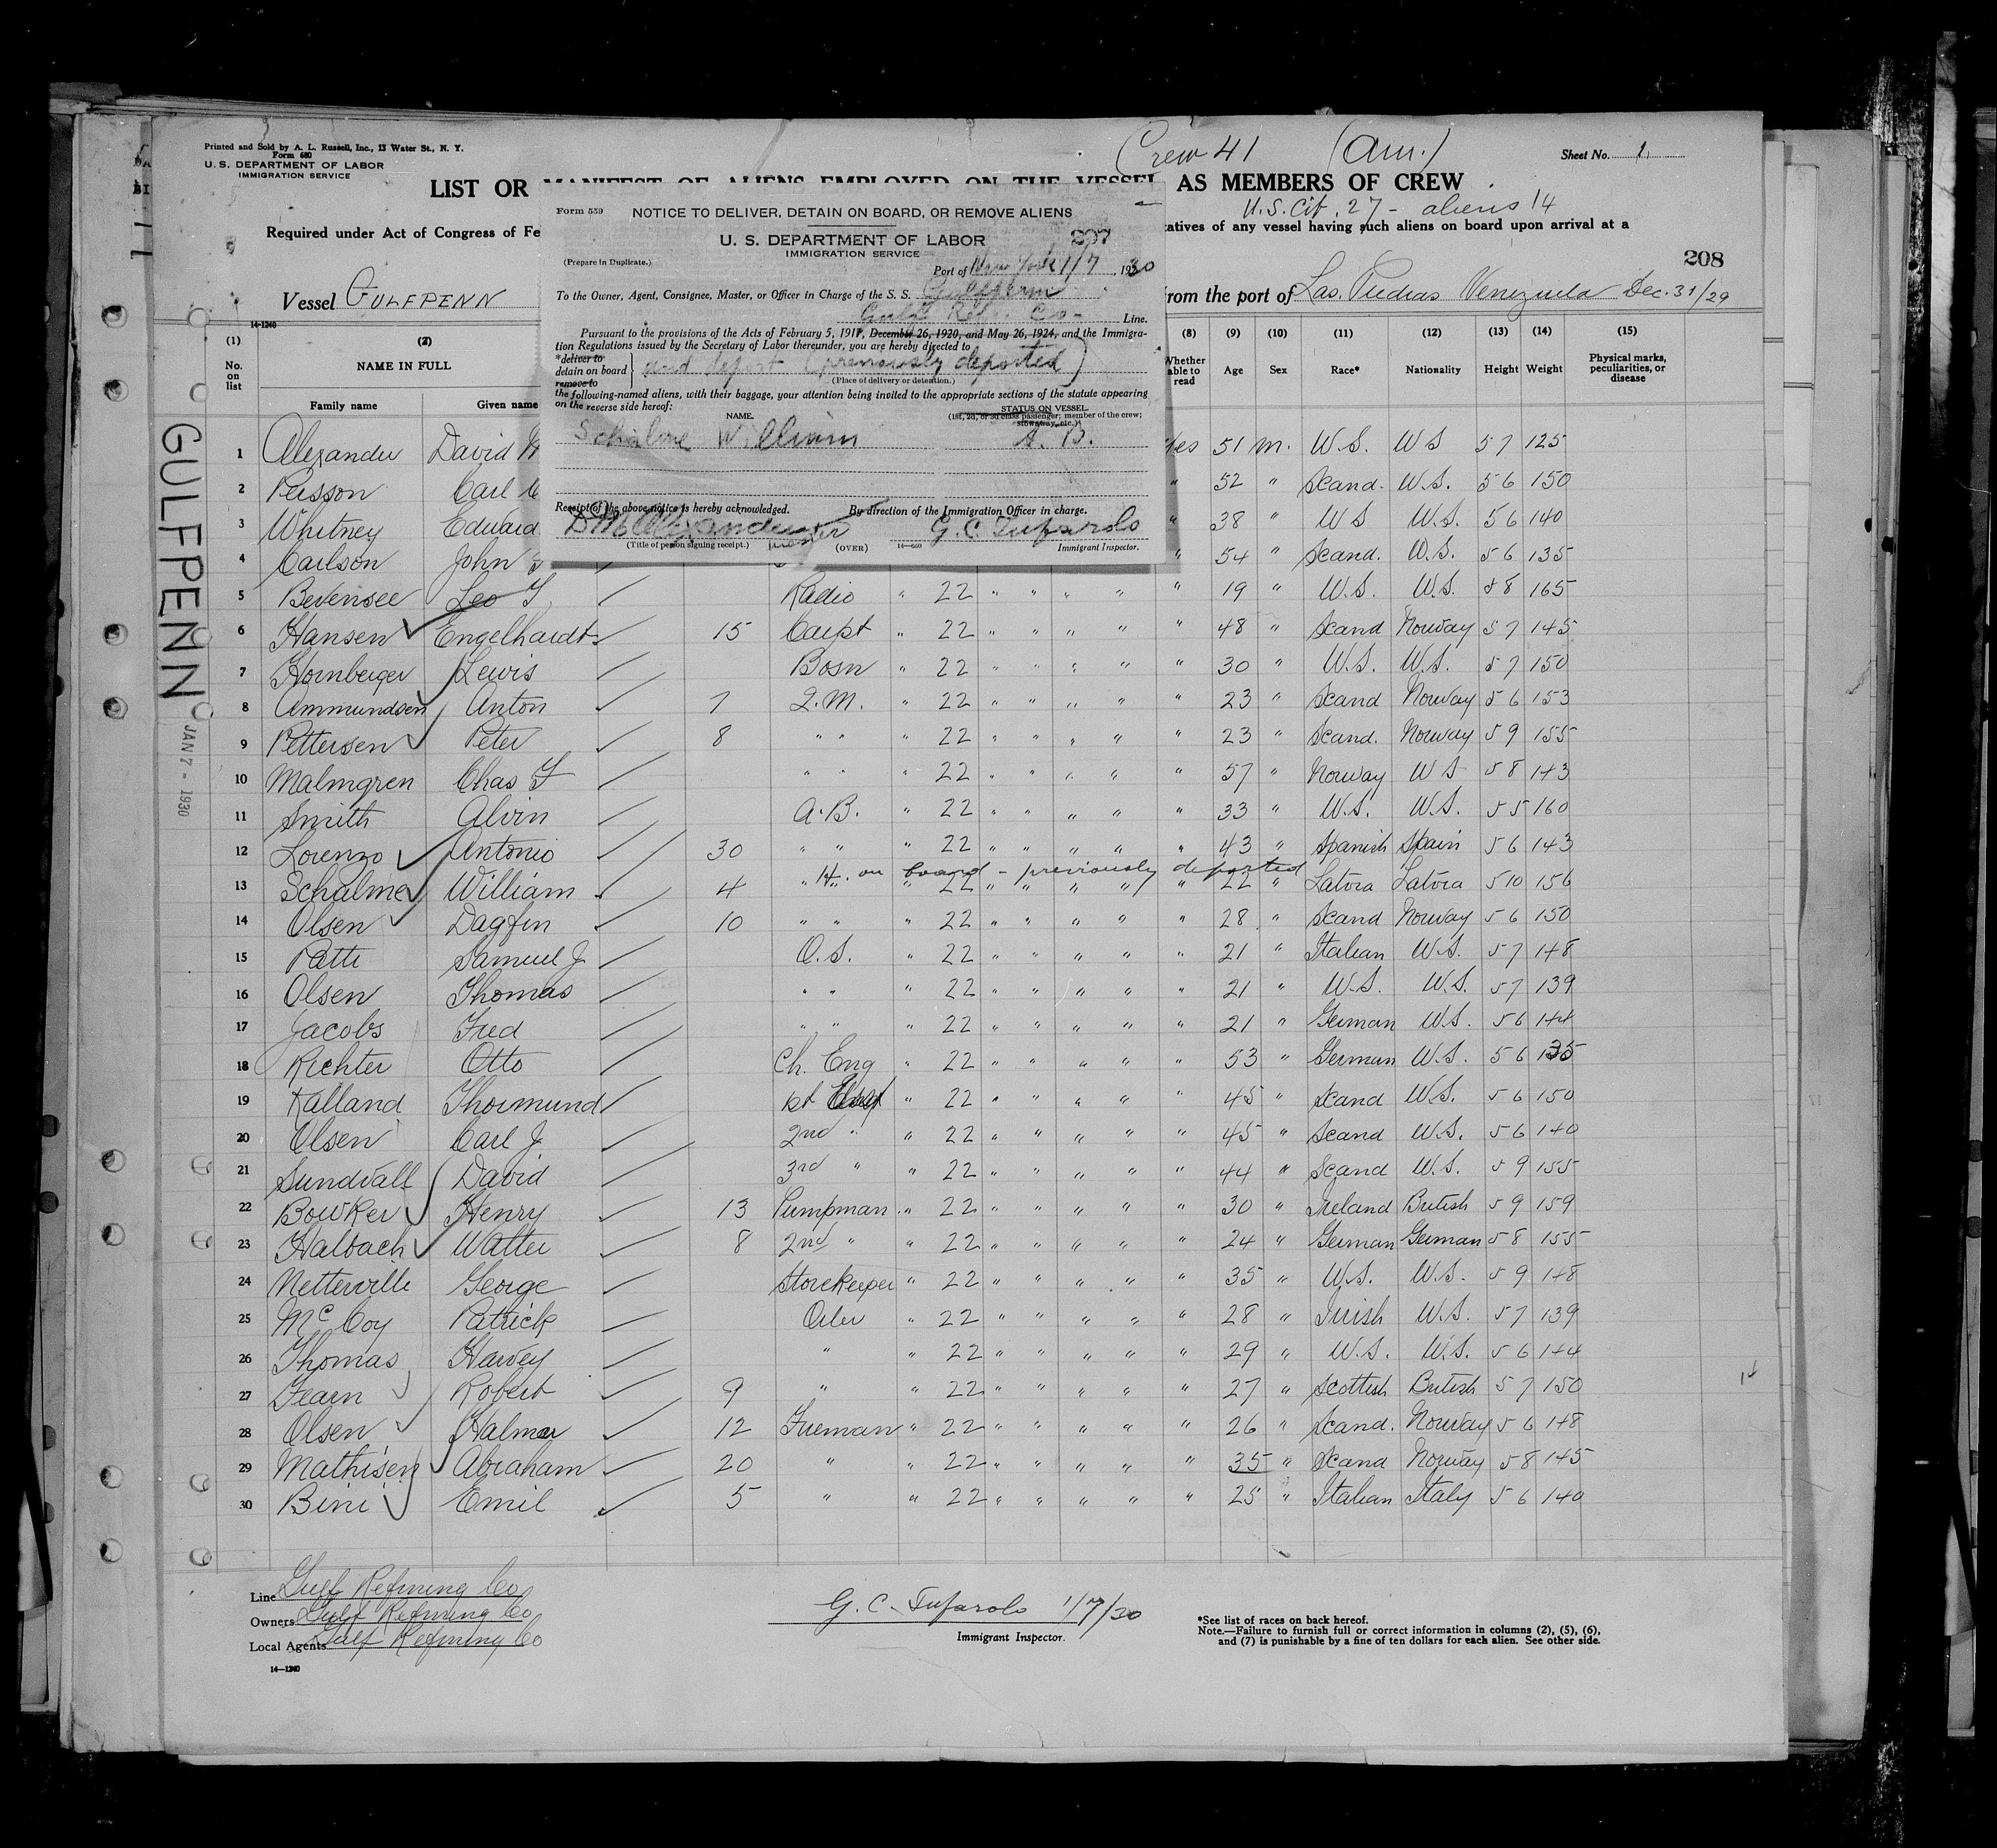 Printed and Sold by A. L. Russell, Inc., 13 Water St., N. Y.
Form 680
U. S. DEPARTMENT OF LABOR
IMMIGRATION SERVICE
Crew 41 (Am.)
Sheet No. 1
LIST OR MANIFEST OF ALIENS EMPLOYED ON THE VESSEL AS MEMBERS OF CREW
U.S. Cit. 27 - aliens 14
Required under Act of Congress of Fe
tatives of any vessel having such aliens on board upon arrival at a
208
Vessel GULFPENN
from the port of Las Piedras Venezuela Dec. 31/29
Form 559
NOTICE TO DELIVER, DETAIN ON BOARD, OR REMOVE ALIENS
U. S. DEPARTMENT OF LABOR
207
IMMIGRATION SERVICE
(Prepare in Duplicate.)
Port of New York 1/7, 1930
To the Owner, Agent, Consignee, Master, or Officer in Charge of the S. S. Gulfpenn
Gulf Ref. Co. Line.
Pursuant to the provisions of the Acts of February 5, 1917, December 26, 1920, and May 26, 1924, and the Immigra-
tion Regulations issued by the Secretary of Labor thereunder, you are hereby directed to
*deliver to
detain on board and deport (previously deported)
remove to
(Place of delivery or detention.)
the following-named aliens, with their baggage, your attention being invited to the appropriate sections of the statute appearing
on the reverse side hereof:
NAME.
STATUS ON VESSEL.
(1st, 2d, or 3d class passenger; member of the crew;
stowaway, etc.)
Schalme William A. B.
Receipt of the above notice is hereby acknowledged.
By direction of the Immigration Officer in charge.
D M Alexander master
G. C. Tufarolo
(Title of person signing receipt.)
(OVER)
14—660
Immigrant Inspector.
14-1240
(1) (2) (8) (9) (10) (11) (12) (13) (14) (15)
No. on list
NAME IN FULL
Family name Given name
Whether able to read
Age Sex Race* Nationality Height Weight
Physical marks, peculiarities, or disease
GULFPENN
JAN 7 - 1930
1 Alexander David M Yes 51 m. U.S. US 5 7 125
2 Persson Carl " 52 " Scand. U.S. 5 6 150
3 Whitney Edward " 38 " US U.S. 5 6 140
4 Carlson John " 54 " Scand. U.S. 5 6 135
5 Bevensee Leo F Radio " 22 " " " " " 19 " U.S. U.S. 5 8 165
6 Hansen Engelhardt 15 Carpt " 22 " " " " " 48 " Scand Norway 5 7 145
7 Hornberger Lewis Bosn " 22 " " " " " 30 " U.S. U.S. 5 7 150
8 Ammundsen Anton 7 Q.M. " 22 " " " " " 23 " Scand Norway 5 6 153
9 Pettersen Peter 8 " " " 22 " " " " " 23 " Scand. Norway 5 9 155
10 Malmgren Chas F " " " 22 " " " " " 57 " Norway US 5 8 143
11 Smith Alvin A.B. " 22 " " " " " 33 " U.S. U.S. 5 5 160
12 Lorenzo Antonio 30 " " " 22 " " " " " 43 " Spanish Spain 5 6 143
H. on board - previously deported
13 Schalme William 4 " " " 22 " " " " " 22 " Latvia Latvia 5 10 156
14 Olsen Dagfin 10 " " " 22 " " " " " 28 " Scand Norway 5 6 150
15 Patti Samuel J O.S. " 22 " " " " " 21 " Italian U.S. 5 7 148
16 Olsen Thomas " " " 22 " " " " " 21 " U.S. U.S. 5 7 139
17 Jacobs Fred " " " 22 " " " " " 21 " German U.S. 5 6 144
18 Richter Otto Ch. Eng " 22 " " " " " 53 " German U.S. 5 6 135
19 Kalland Thormund 1st " 22 " " " " " 45 " Scand U.S. 5 6 150
20 Olsen Carl J 2nd " " 22 " " " " " 45 " Scand U.S. 5 6 140
21 Sundvall David 3rd " " 22 " " " " " 44 " Scand U.S. 5 9 155
22 Bowker Henry 13 Pumpman " 22 " " " " " 30 " Ireland British 5 9 159
23 Halbach Walter 8 2nd " " 22 " " " " " 24 " German German 5 8 155
24 Netterville George Storekeeper " 22 " " " " " 35 " U.S. U.S. 5 9 148
25 McCoy Patrick Oiler " 22 " " " " " 28 " Irish U.S. 5 7 139
26 Thomas Harvey " " 22 " " " " " 29 " U.S. U.S. 5 6 144
27 Fearn Robert 9 " " 22 " " " " " 27 " Scottish British 5 7 150
28 Olsen Halmar 12 Fireman " 22 " " " " " 26 " Scand. Norway 5 6 148
29 Mathisen Abraham 20 " " 22 " " " " " 35 " Scand Norway 5 8 145
30 Bini Emil 5 " " 22 " " " " " 25 " Italian Italy 5 6 140
Line Gulf Refining Co
Owners Gulf Refining Co
Local Agents Gulf Refining Co
14—1240
G. C. Tufarolo 1/7/30
Immigrant Inspector.
*See list of races on back hereof.
Note.—Failure to furnish full or correct information in columns (2), (5), (6),
and (7) is punishable by a fine of ten dollars for each alien. See other side.